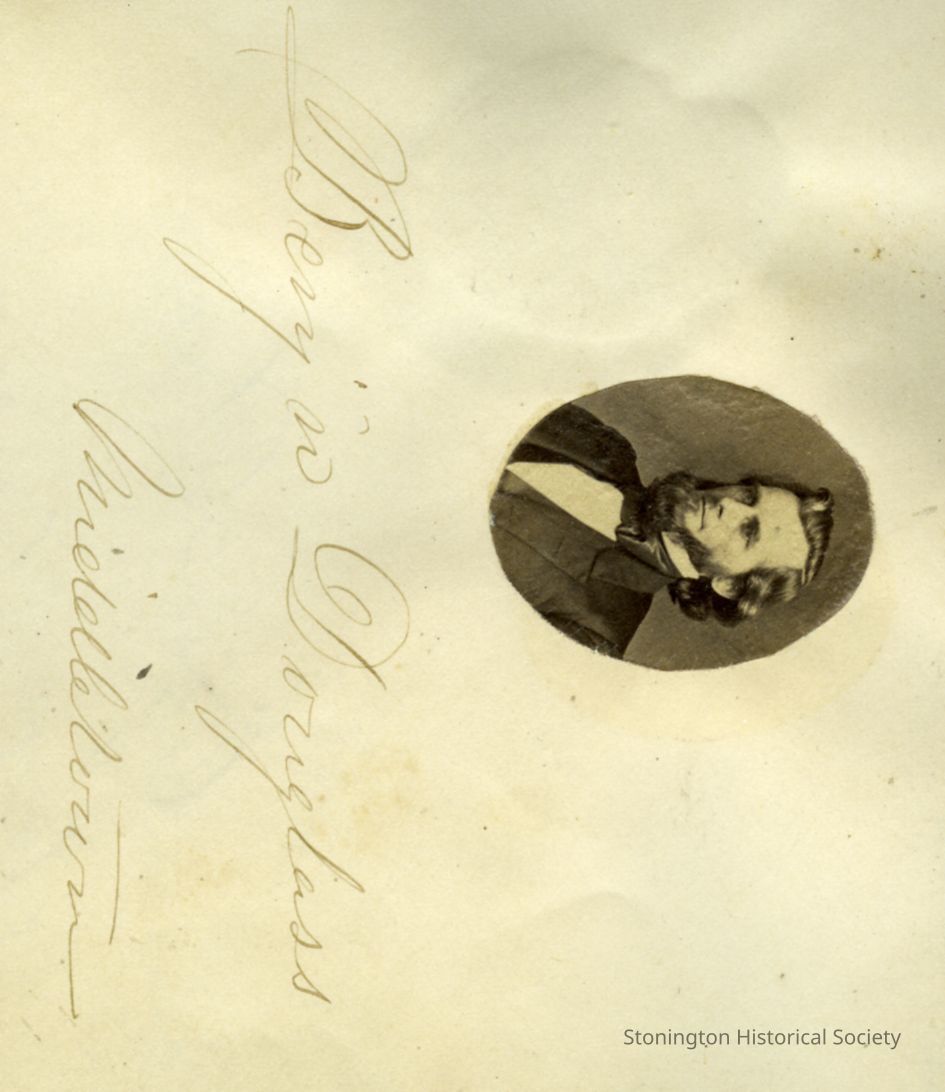 Benj'n Douglass
Middletown
Stonington Historical Society